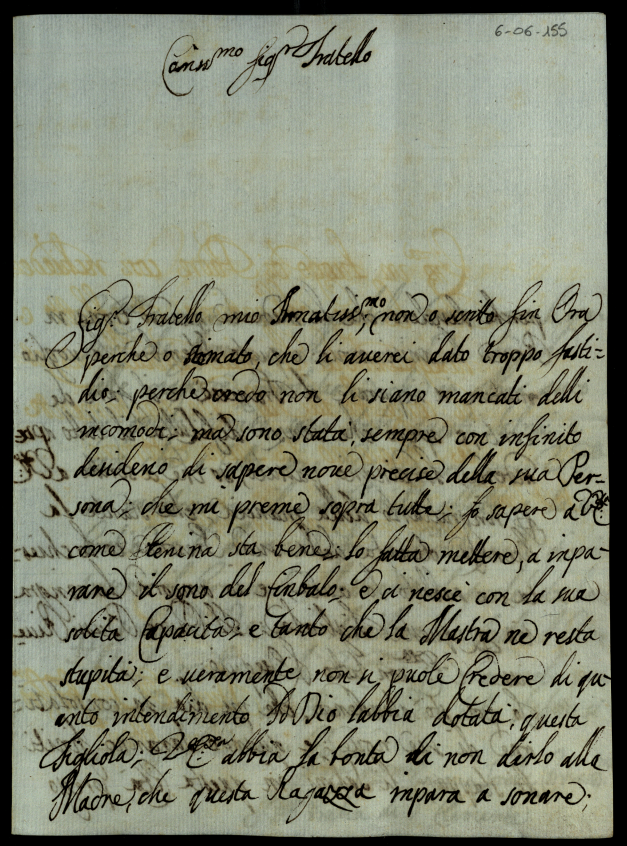 6-06-155
Carissmo Sigr Fratello
Sigr Fratello mio Amatissmo; non o scritto fin Ora
perche o stimato, che li averei dato troppo fasti-
dio; perche credo non li siano mancati delli
incomodi; ma sono stata, sempre con infinito
desiderio di sapere nove precise della sua Per-
sona; che mi preme sopra tutte; fo sapere a
come Nenina sta bene; lo fatta mettere, a inpa-
rare il sono del Cinbalo; e ci riesce con la sua
solita Capacita; e tanto che la Mastra ne resta
stupita; e veramente non si puole Credere di qu-
anto intendimento Dio labbia dotata, questa
figliola; abbia la bonta di non dirlo alla
Madre, che questa Ragazza inpara a sonare;